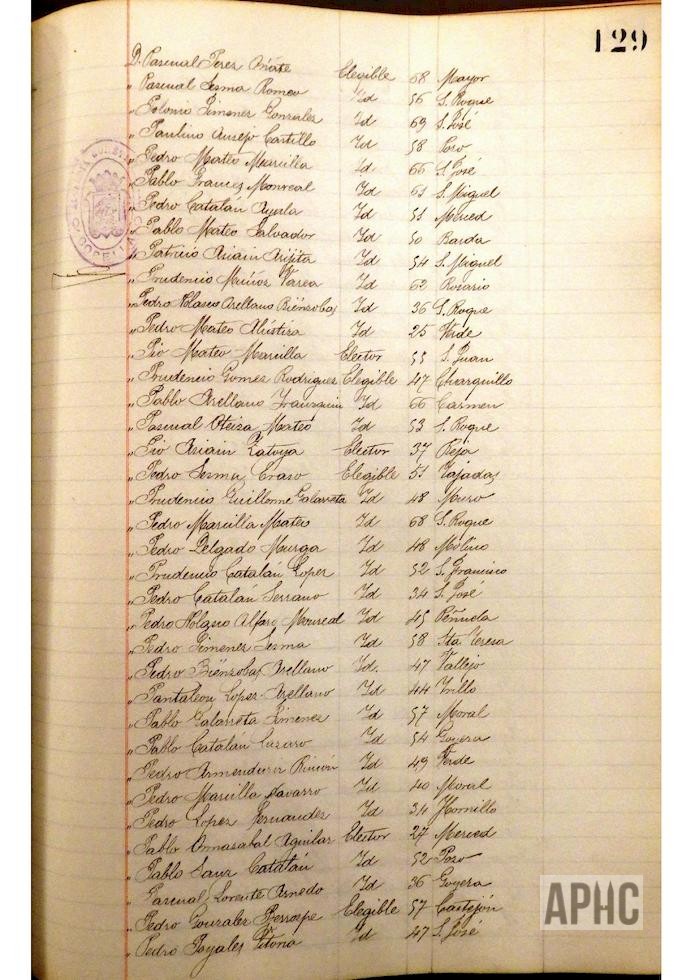 129
D. Pascual Perez Oñate Elegible 68 Mayor
" Pascual Sesma Romeo Id 56 S. Roque
" Polonio Jimenez Gonzalez Id 69 S. José
" Paulino Ausejo Castillo Id 58 Poso
" Pedro Mateo Marcilla Id 66 S. José
" Pablo Frances Monreal Id 61 S. Miguel
" Pedro Catalán Ayala Id 51 Merced
" Pablo Mateo Salvador Id 50 Barda
" Patricio Asiain Id 54 S. Miguel
" Prudencio Muñoz Varea Id 63 Rosario
" Pedro Nolasco Arellano Biénzobas Id 36 S. Roque
" Pedro Mateo Id 25 Verde
" Pio Mateo Marcilla Elector 55 S. Juan
" Prudencio Gomez Rodriguez Elegible 47 Charquillo
" Pablo Arellano Id 66 Carmen
" Pascual Oteiza Mateo Id 53 S. Roque
" Pio Asiain Zatoya Elector 37 Reja
" Pedro Sesma Craso Elegible 51 Tajadas
" Prudencio Guillorme Galarreta Id 48 Muro
" Pedro Marcilla Mateo Id 68 S. Roque
" Pedro Delgado Murga Id 48 Molino
" Prudencio Catalán Lopez Id 52 S. Francisco
" Pedro Catalan Serrano Id 34 S. José
" Pedro Nolasco Alfaro Monreal Id 45 Peñuela
" Pedro Jimenez Sesma Id 58 Sta Teresa
" Pedro Biénzobas Arellano Id. 47 Vallejo
" Pantaleon Lopez Arellano Id 44 Trillo
" Pablo Galarreta Jimenez Id 57 Moral
" Pablo Catalán Lázaro Id 54 Goyera
" Pedro Armendariz Rincón Id 49 Verde
" Pedro Marcilla Navarro Id 40 Moral
" Pedro Lopez Fernandez Id 34 Hornillo
" Pablo Amasabal Aguilar Elector 27 Merced
" Pablo Sanz Catalán Id 52 Poso
" Pascual Lorente Arnedo Id 36 Goyera
" Pedro Gonzalez Elegible 57 Castejón
" Pedro Pitona Id 47 S. José
APHC